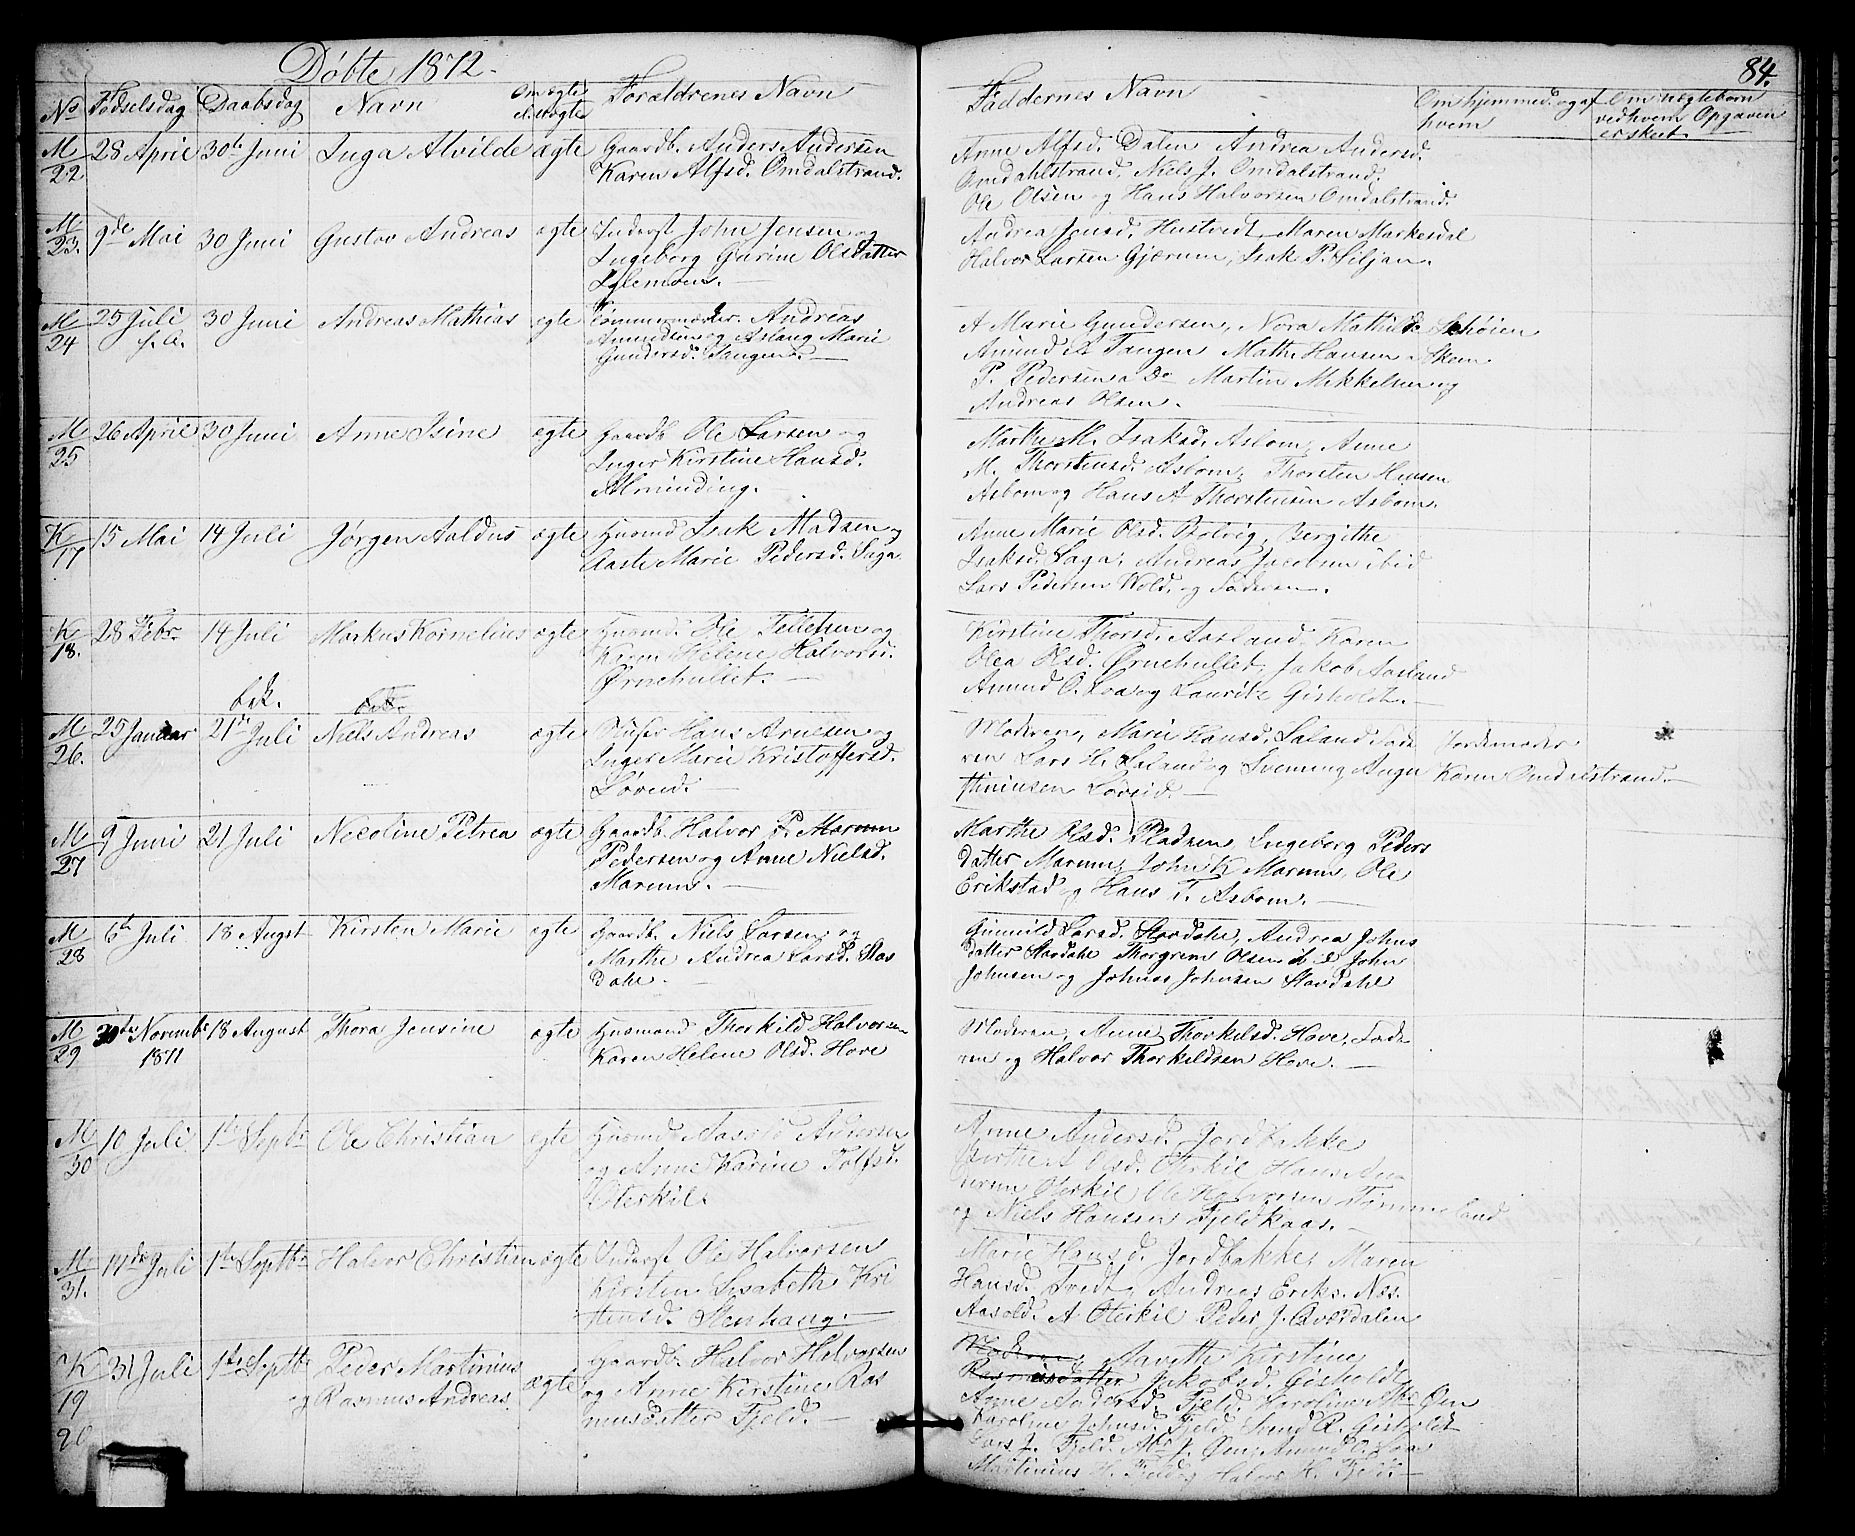 Døbte 1872.
84.
No Fødselsdag Daabsdag Navn Om ægte el. uægte Forældrenes Navn Faddernes Navn Om hjemmed. og af hvem Om uægteborn ved hvem Opgaven er skeet.
M 22 28 April 30te Juni Inga Alvilde ægte Gaardb. Anders Andersen
Karen Alfsd. Omdalstrand.
Anne Alfsd. Dalen Andrea Andersd.
Omdahlstrand, Niels J. Omdalstrand.
Ole Olsen og Hans Halvorsen Omdalstrand.
M 23. 9de Mai 30 Juni Gustav Andreas ægte Inderst John Jensen og
Ingeborg Gurine Olsdatter
Andrea Jensd. Hustvedt, Maren Markesdal
Halvor Larsen Gjærum, Isak P. Siljan.
M 24 25 Juli f. A. 30 Juni Andreas Mathias ægte Tømmermærker. Andreas
Amundsen og Aslaug Marie
Gundersd. Tangen.
A Marie Gundersen, Nora Mathilde Schöien
Amund A Tangen Math. Hansen Skem
P. Pedersen a Do Martin Mikkelsen og
Andreas Olsen.
M 25 26 April 30 Juni Anne Isine ægte Gaardb Ole Larsen og
Inger Kirstine Hansd.
Alminding.
Marthe M. Isaksd. Asbom, Anne
M. Thorstensd. Asbom, Thorsten Hansen
Asbom og Hans A Thorstensen Asbom.
K 17 15 Mai 14 Juli Jørgen Aaldus ægte Husmd Isak Madsen og
Aaste Marie Pedersd. Saga
Anne Marie Olsd. Bolvig, Bergithe
Isaksd. Saga, Andreas Jacobsen ibid
Lars Pedersen Wold, og Faderen.
K 18. 28 Febr. 14 Juli Markus Kornelius ægte Husmd. Ole Tellefsen og
Karen Helene Halvorsd.
Ørnehullet.
Kirstine Thorsd. Aasland Karen
Olea Olsd. Ørnehullet, Jakob Aasland
Amund O. Loa og Lauritz Gisholdt.
bek.
bek.
M 26. 25 Januar 21de Juli Niels Andreas ægte Hans Arnesen og
Inger Marie Kristoffersd.
Løveid.
Moderen, Marie Hansd. Saland Fade Jordemoder
ren Lars H. Saland og Svenning Augu Karen Omdalstrand.
stinusen Løveid.
M 27 9 Juni 21 Juli Nicoline Petrea ægte Gaardb. Halvor P. Marum
Pedersen og Anne Nielsd.
Marum.
Marthe Olsd. Pladsen, Ingeborg Peders
datter Marum, John K Marum, Ole
Erikstad og Hans T. Asbom.
M 28 6te Juli 18 Augst Kirsten Marie ægte Gaardb. Niels Larsen og
Marthe Andrea Larsd. Stav
dahl.
Gunnild Larsd. Stavdahl, Andrea Johns
datter Stavdahl Thorgrem Olsen ibid John
Johnsen og Johnas Johnsen Stavdahl
M 29 30te Novembr 1871 18 August Thora Jensine ægte Husmand Thorkild Halvorsen
Karen Helene Olsd. Hove
Moderen, Anne Thorkilsd. Hove, Fade
ren og Halvor Thorkildsen Hove.
M 30 10 Juli 1te Septbr Ole Christian ægte Husmd Aasold Andersen
og Anne Karine Tolfsd.
Oterkil.
Anne Andersd. Jordbakke
Berthe A Olsd. Oterkil, Hans An
dersen Oterkil Ole Halvorsen Tømmerland
og Niels Hansen Fjeldkaas.
M 31. 14de Juli 1te Septbr Halvor Christian ægte Inderst Ole Halvorsen
Kirsten Lisabeth Kri
stensd. Stenhaug.
Marie Hansd. Jordbakke, Maren
Hansd. Tvedt, Andreas Eriks. Næs.
Aasold. A Oterkil Peder J. Qværdalen
K 19 20 31 Juli 1te Septbr Peder Martinius
og Rasmus Andreas ægte Gaardb. Halvor Halvorsen
og Anne Kirstine Ras
musdatter Fjeld.
Moderen, Kirstine
Rasmusdatter Jakobsd. Gisholdt
Anne Andersd. Fjeld. Karoline Øen
Karoline Johnsd. Fjeld Svend R. Gisholdt
Lars J. Fjeld. J. Øen, Amund O. Loa
Martinius H. Fjeld og Halvor H. Fjeld.